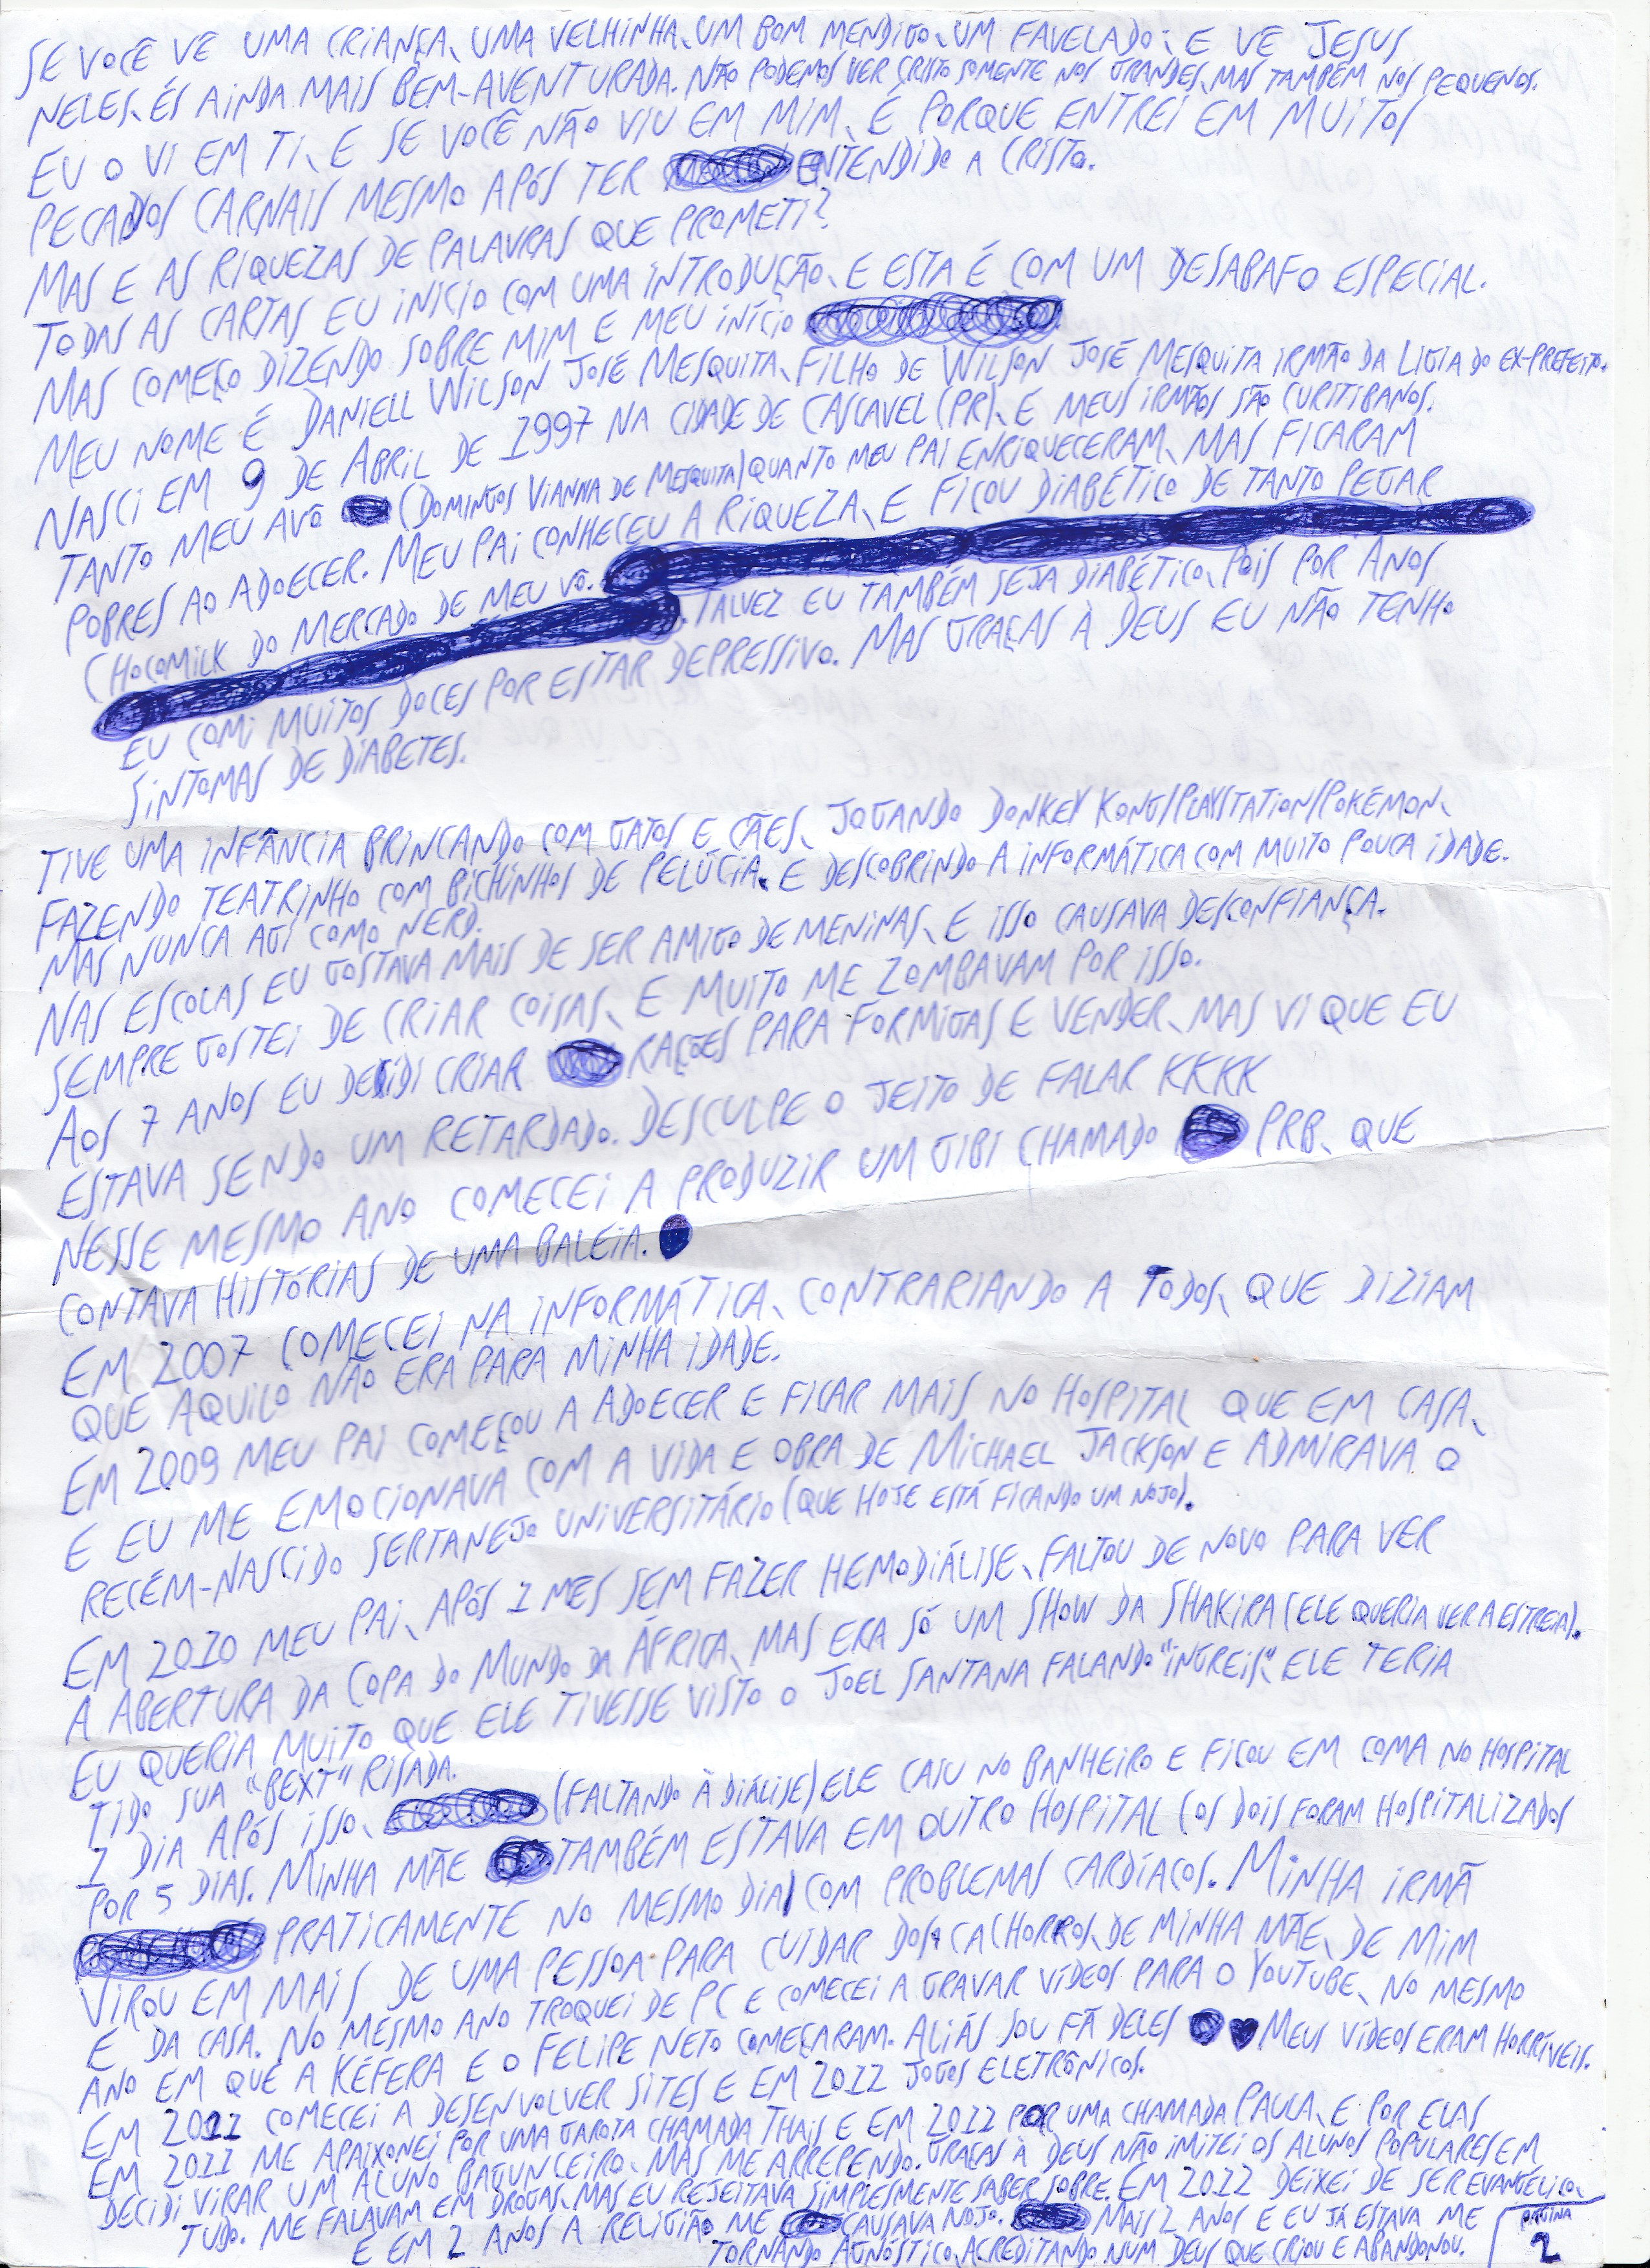 SE VOCÊ VÊ UMA CRIANÇA, UMA VELHINHA, UM BOM MENDIGO, UM FAVELADO; E VÊ JESUS
NELES, ÉS AINDA MAIS BEM-AVENTURADA. NÃO PODEMOS VER CRISTO SOMENTE NOS GRANDES, MAS TAMBÉM NOS PEQUENOS.
EU O VI EM TI, E SE VOCÊ NÃO VIU EM MIM, É PORQUE ENTREI EM MUITOS
PECADOS CARNAIS MESMO APÓS TER ENTENDIDO A CRISTO.
MAS E AS RIQUEZAS DE PALAVRAS QUE PROMETI?
TODAS AS CARTAS EU INICIO COM UMA INTRODUÇÃO, E ESTA É COM UM DESABAFO ESPECIAL.
MAS COMEÇO DIZENDO SOBRE MIM E MEU INÍCIO
MEU NOME É DANIELL WILSON JOSÉ MESQUITA, FILHO DE WILSON JOSÉ MESQUITA IRMÃO DA LIGIA DO EX-PREFEITO.
NASCI EM 9 DE ABRIL DE 1997 NA CIDADE DE CASCAVEL (PR), E MEUS IRMÃOS SÃO CURITIBANOS.
TANTO MEU AVÔ (DOMINGOS VIANNA DE MESQUITA) QUANTO MEU PAI ENRIQUECERAM, MAS FICARAM
POBRES AO ADOECER. MEU PAI CONHECEU A RIQUEZA, E FICOU DIABÉTICO DE TANTO PEGAR
CHOCOMILK DO MERCADO DE MEU VÔ.
TALVEZ EU TAMBÉM SEJA DIABÉTICO, POIS POR ANOS
EU COMI MUITOS DOCES POR ESTAR DEPRESSIVO. MAS GRAÇAS À DEUS EU NÃO TENHO
SINTOMAS DE DIABETES.
TIVE UMA INFÂNCIA BRINCANDO COM GATOS E CÃES, JOGANDO DONKEY KONG/PLAYSTATION/POKÉMON,
FAZENDO TEATRINHO COM BICHINHOS DE PELÚCIA, E DESCOBRINDO A INFORMÁTICA COM MUITO POUCA IDADE.
MAS NUNCA AGI COMO NERD.
NAS ESCOLAS EU GOSTAVA MAIS DE SER AMIGO DE MENINAS, E ISSO CAUSAVA DESCONFIANÇA.
SEMPRE GOSTEI DE CRIAR COISAS, E MUITO ME ZOMBAVAM POR ISSO.
AOS 7 ANOS EU DECIDI CRIAR RAÇÕES PARA FORMIGAS E VENDER, MAS VI QUE EU
ESTAVA SENDO UM RETARDADO. DESCULPE O JEITO DE FALAR KKKK
NESSE MESMO ANO COMECEI A PRODUZIR UM GIBI CHAMADO PRB, QUE
CONTAVA HISTÓRIAS DE UMA BALEIA.
EM 2007 COMECEI NA INFORMÁTICA, CONTRARIANDO A TODOS, QUE DIZIAM
QUE AQUILO NÃO ERA PARA MINHA IDADE.
EM 2009 MEU PAI COMEÇOU A ADOECER E FICAR MAIS NO HOSPITAL QUE EM CASA,
E EU ME EMOCIONAVA COM A VIDA E OBRA DE MICHAEL JACKSON E ADMIRAVA O
RECÉM-NASCIDO SERTANEJO UNIVERSITÁRIO (QUE HOJE ESTÁ FICANDO UM NOJO).
EM 2010 MEU PAI, APÓS 1 MES SEM FAZER HEMODIÁLISE, FALTOU DE NOVO PARA VER
A ABERTURA DA COPA DO MUNDO DA ÁFRICA, MAS ERA SÓ UM SHOW DA SHAKIRA (ELE QUERIA VER A ESTREIA).
EU QUERIA MUITO QUE ELE TIVESSE VISTO O JOEL SANTANA FALANDO "INGREIS", ELE TERIA
TIDO SUA "BEXT" RISADA.
1 DIA APÓS ISSO, (FALTANDO À DIÁLISE) ELE CAIU NO BANHEIRO E FICOU EM COMA NO HOSPITAL
POR 5 DIAS. MINHA MÃE TAMBÉM ESTAVA EM OUTRO HOSPITAL (OS DOIS FORAM HOSPITALIZADOS
PRATICAMENTE NO MESMO DIA) COM PROBLEMAS CARDÍACOS. MINHA IRMÃ
VIROU EM MAIS DE UMA PESSOA PARA CUIDAR DOS 4 CACHORROS, DE MINHA MÃE, DE MIM
E DA CASA. NO MESMO ANO TROQUEI DE PC E COMECEI A GRAVAR VÍDEOS PARA O YOUTUBE, NO MESMO
ANO EM QUE A KÉFERA E O FELIPE NETO COMEÇARAM. ALIÁS SOU FÃ DELES ♥ MEUS VÍDEOS ERAM HORRÍVEIS.
EM 2011 COMECEI A DESENVOLVER SITES E EM 2012 JOGOS ELETRÔNICOS.
EM 2011 ME APAIXONEI POR UMA GAROTA CHAMADA THAIS E EM 2012 POR UMA CHAMADA PAULA, E POR ELAS
DECIDI VIRAR UM ALUNO BAGUNCEIRO, MAS ME ARREPENDO. GRAÇAS À DEUS NÃO IMITEI OS ALUNOS POPULARES EM
TUDO. ME FALAVAM EM DROGAS, MAS EU REJEITAVA SIMPLESMENTE SABER SOBRE. EM 2012 DEIXEI DE SER EVANGÉLICO,
E EM 2 ANOS A RELIGIÃO ME CAUSAVA NOJO. MAIS 2 ANOS E EU JÁ ESTAVA ME
TORNANDO AGNÓSTICO, ACREDITANDO NUM DEUS QUE CRIOU E ABANDONOU.
PÁGINA
2